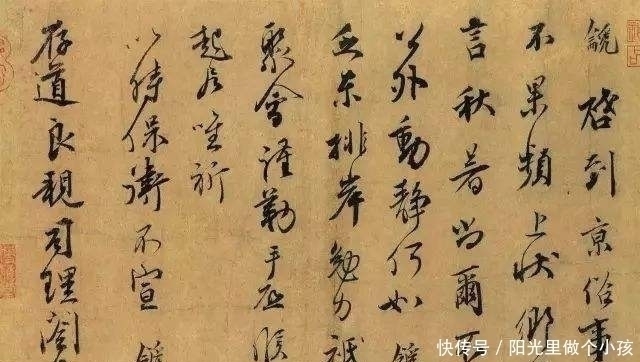 說啓到京俗事
不果頻上狀鄉
言秋暑尚爾
以外動靜何如說
東排岸勉力祗
聚會謹勒手啓候
起居唯祈
以時保衛不宣 說
存道良親司理閤
快传号/阳光里做个小孩